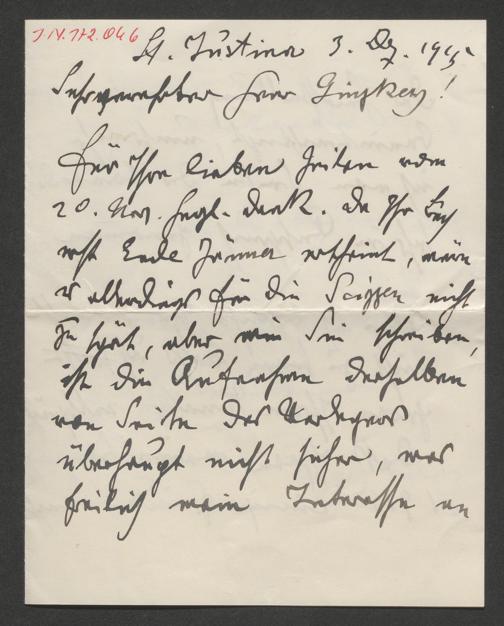 J.N. 172.046
St. Justina 3. Dez. 1915
Sehrverehrter Herr Ginzkey!
Für Ihre lieben Zeilen vom
20. Nov. herzl. Dank. Da Ihr Buch
erst Ende Jänner erscheint, wäre
es allerdings für die Skizzen nicht
zu spät, aber wie Sie schreiben,
ist die Aufnahme derselben
von Seite des Verlegers
überhaupt nicht sicher, was
freilich mein Interesse an